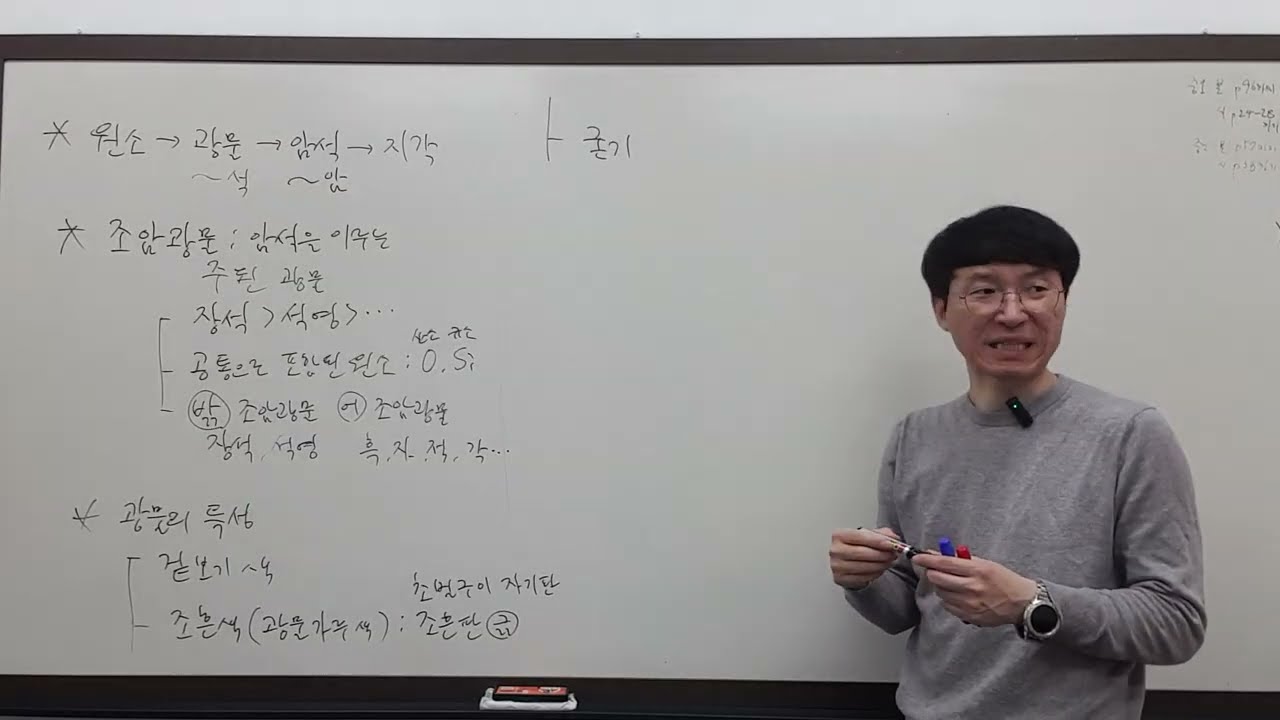 * 원소 → 광물 → 암석 → 지각
~석 ~암
* 조암광물 : 암석을 이루는
주된 광물
장석 > 석영 > ...
산소 규소
공통으로 포함된 원소 : O, Si
밝 조암광물 어 조암광물
장석, 석영 흑, 자, 적, 각...
* 광물의 특성
겉보기 색
초벌구이 자기판
조흔색 (광물가루 색) : 조흔판 긁
굳기